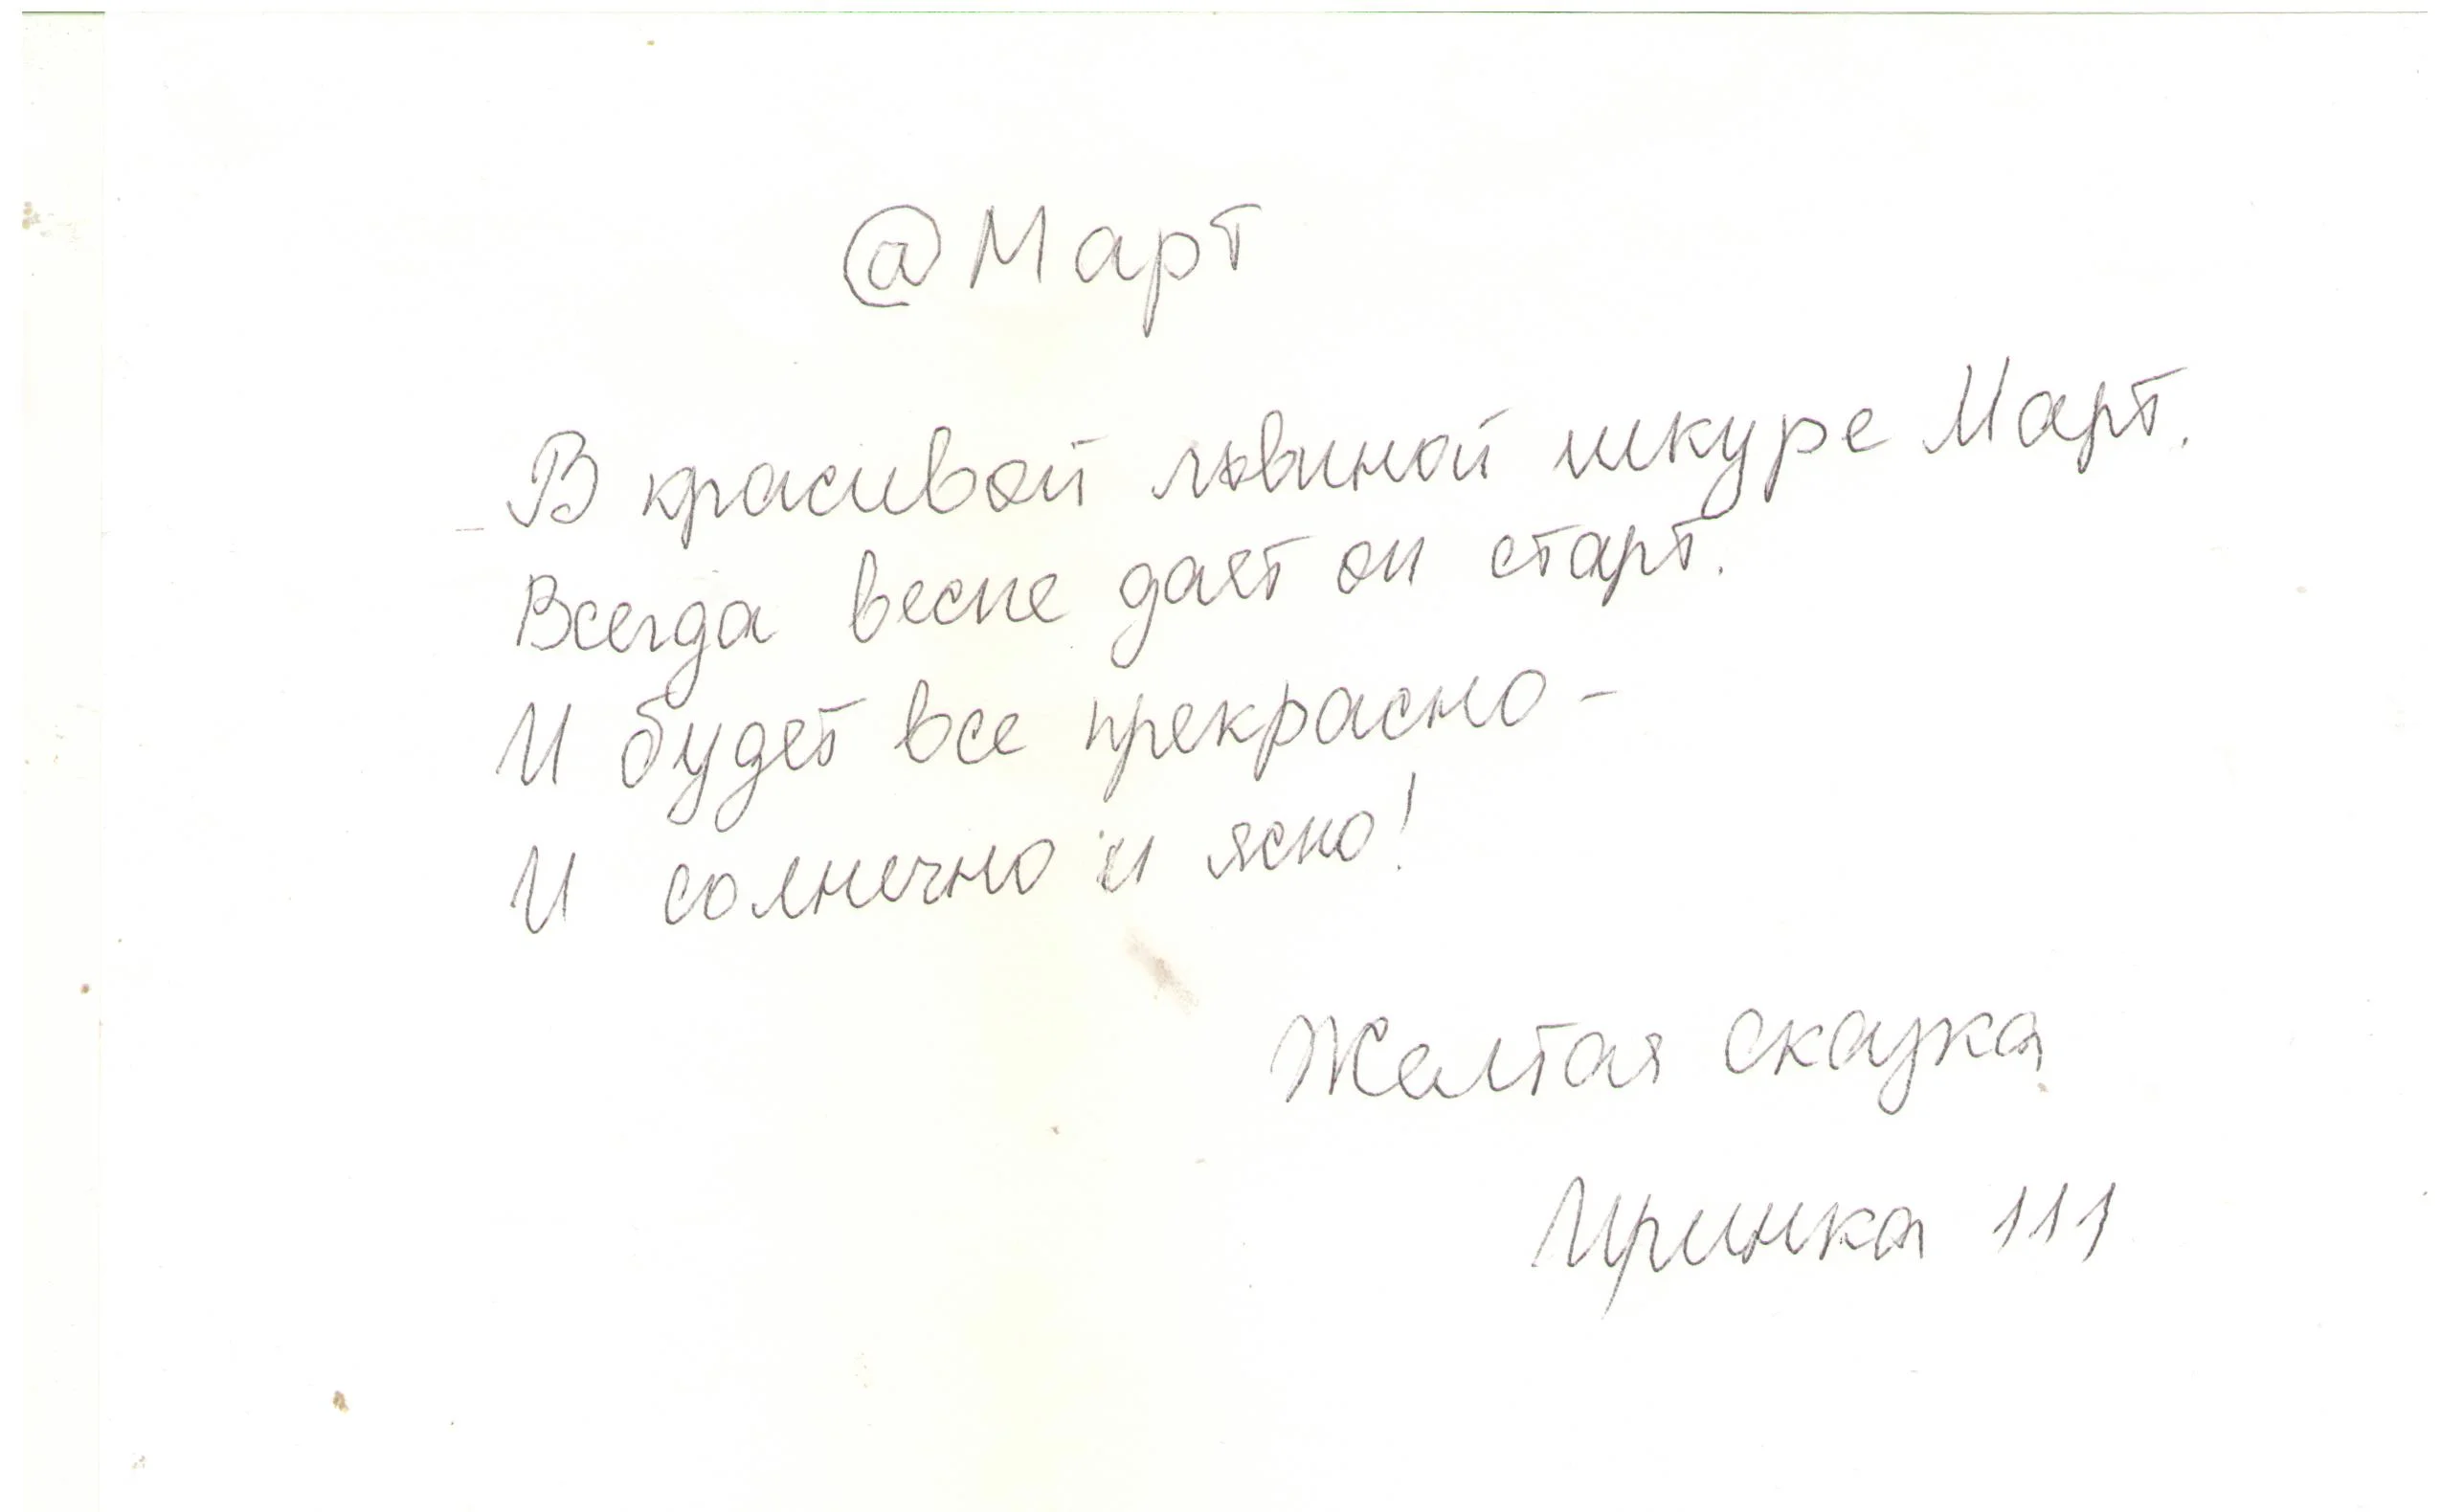 @Март
В красивой львиной шкуре Март.
Всегда весне дает он старт.
И будет все прекрасно -
И солнечно и ясно!
Желтая сказка
Иринка 111